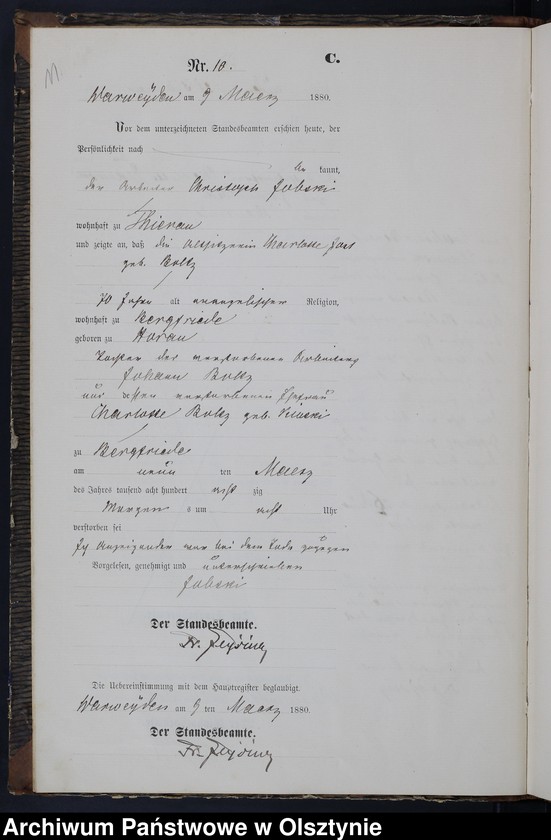 C.
Nr. 10.
Warweyden am 9 Maerz 1880.
Vor dem unterzeichneten Standesbeamten erschien heute, der
Persönlichkeit nach
be kannt,
der Arbeiter Christoph Jobski
wohnhaft zu Thierau
und zeigte an, daß die Altsitzerin Charlotte
geb. Boltz
70 Jahre alt evangelischer Religion,
wohnhaft zu Bergfriede
geboren zu
Tochter des verstorbenen Arbeiters
Johann Boltz
und dessen verstorbenen Ehefrau
Charlotte Boltz geb.
zu Bergfriede
am neun ten Maerz
des Jahres tausend acht hundert acht zig
Morgen s um acht Uhr
verstorben sei
Anzeigender war bei dem Tode zugegen
Vorgelesen, genehmigt und unterschrieben
Jobski
Der Standesbeamte.
Die Uebereinstimmung mit dem Hauptregister beglaubigt.
Warweyden am 9 ten Maerz 1880.
Der Standesbeamte.
Archiwum Państwowe w Olsztynie